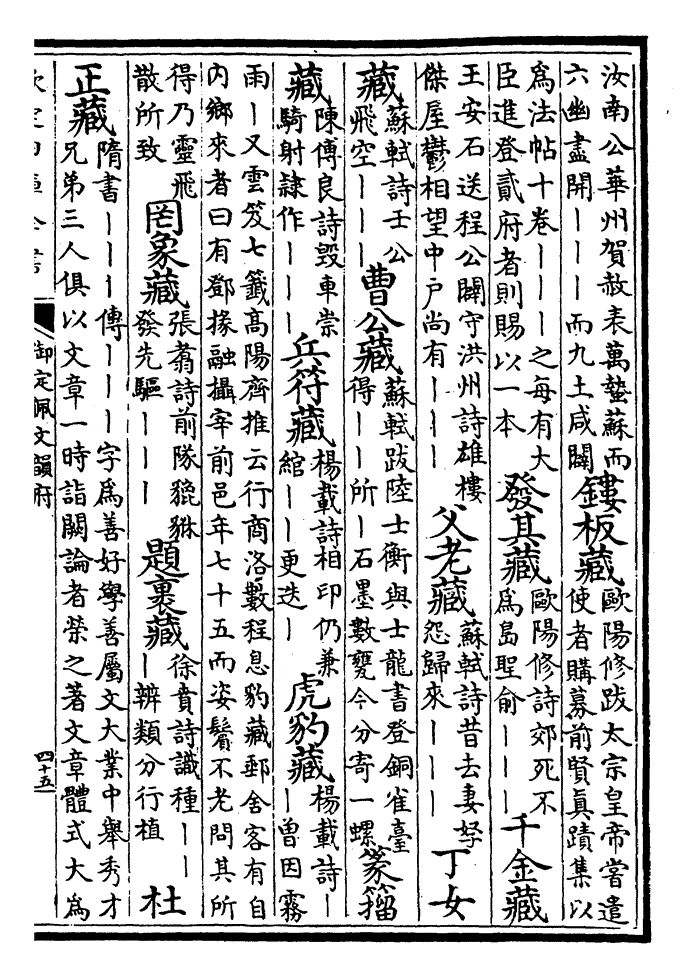 汝南公華州賀赦表萬蟄蘇而
六幽盡開丨丨丨而九土咸闢
鏤板藏
歐陽修跋太宗皇帝嘗遣
使者購募前賢真蹟集以
為法帖十卷丨丨丨之每有大
臣進登貳府者則賜以一本
發其藏
歐陽修詩郊死不
為島聖俞丨丨丨
千金藏
王安石送程公闢守洪州詩雄樓
傑屋鬱相望中戶尚有丨丨丨
父老藏
蘇軾詩昔去妻孥
怨歸來丨丨丨
丁女
藏
蘇軾詩壬公
飛空丨丨丨
曹公藏
蘇軾跋陸士衡與士龍書登銅雀臺
得丨丨所丨石墨數甕今分寄一螺
篆籀
藏
陳傅良詩毀車崇
騎射隸作丨丨丨
兵符藏
楊載詩相印仍兼
綰丨丨更迭丨
虎豹藏
楊載詩丨
丨曾因霧
雨丨又雲笈七籤高陽齊推云行商洛數程息豹藏郵舍客有自
內鄉來者曰有鄧掾融攝宰前邑年七十五而姿鬢不老問其所
得乃靈飛
散所致
罔象藏
張翥詩前隊貔貅
發先驅丨丨丨
題裹藏
徐賁詩識種丨丨
丨辨類分行植
杜
正藏
隋書丨丨丨傳丨丨丨字為善好學善屬文大業中舉秀才
兄弟三人俱以文章一時詣闕論者榮之著文章體式大為
欽定四庫全書
御定佩文韻府
四十五